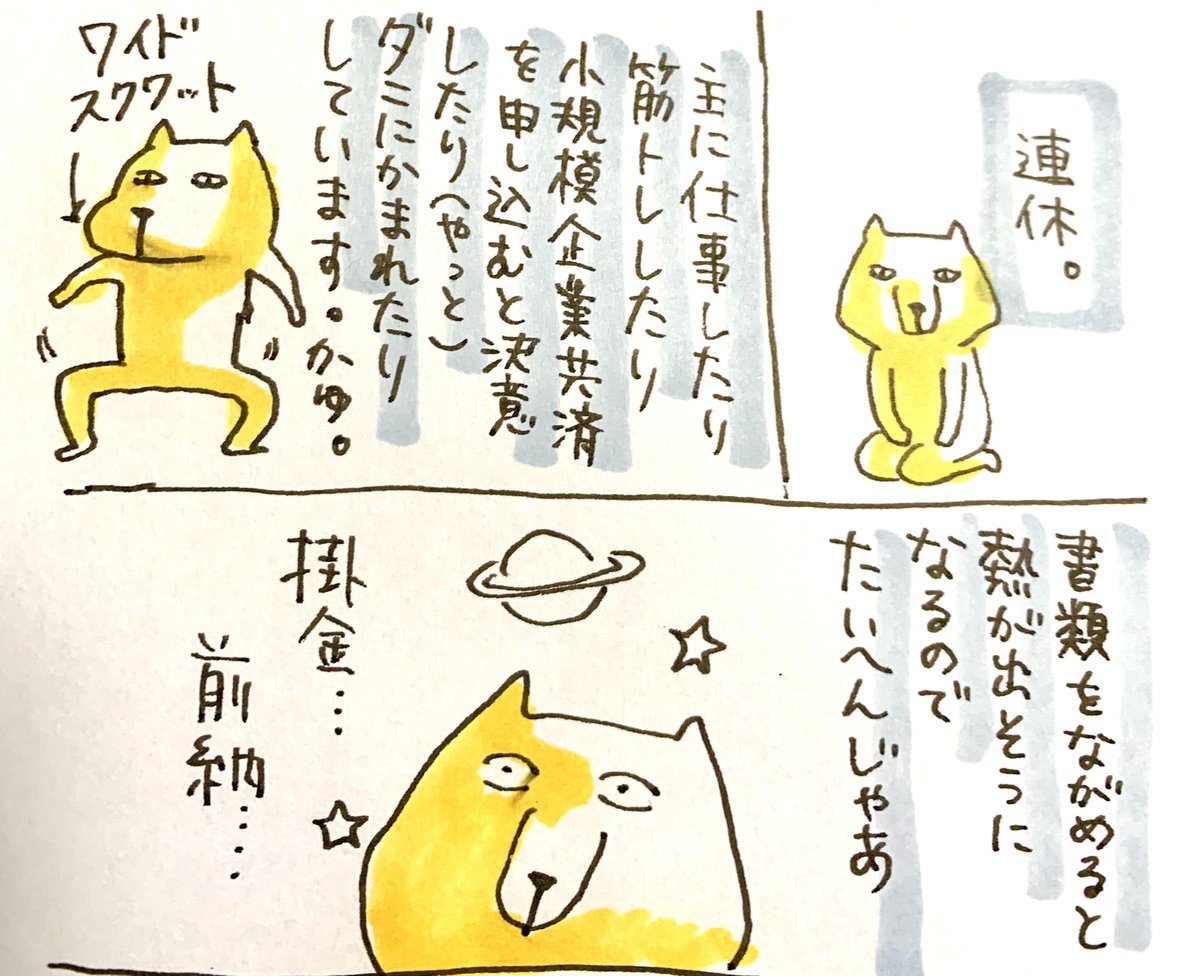 連休。
主に仕事したり
筋トレしたり
小規模企業共済
を申し込むと決意
したり(やっと)
ダニにかまれたり
しています。かゆ。
ワイド
スクワット
書類をながめると
熱が出そうに
なるので
たいへんじゃあ
掛金…
前納……